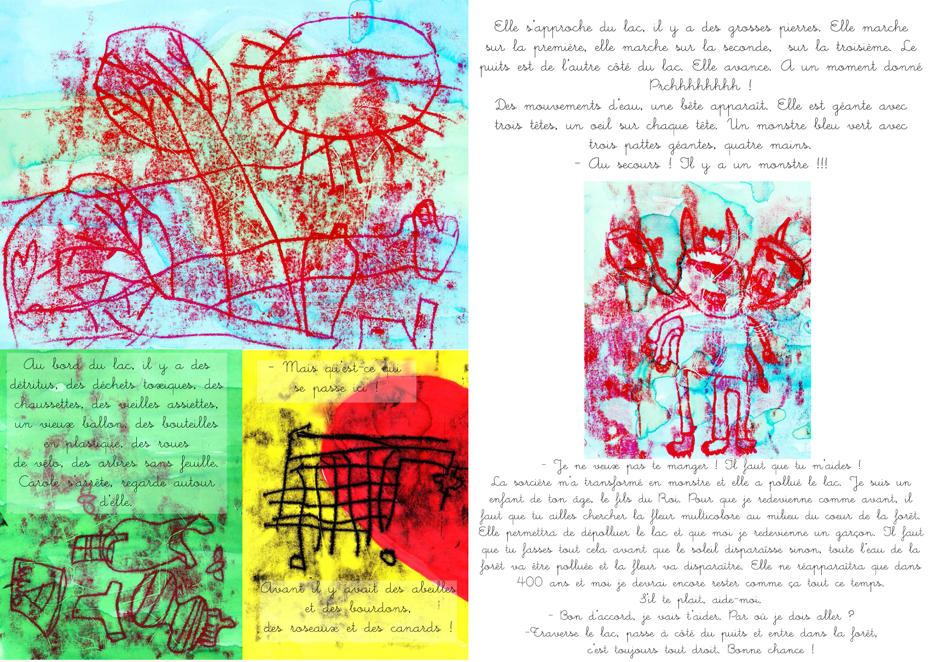 Au bord du lac, il y a des
détritus, des déchets toxiques, des
chaussettes, des vieilles assiettes,
un vieux ballon, des bouteilles
en plastique, des roues
de vélo, des arbres sans feuille.
Carole s'arrête, regarde autour
d'elle.
- Mais qu'est-ce qui
se passe ici !
Avant il y avait des abeilles
et des bourdons,
des roseaux et des canards !
Elle s'approche du lac, il y a des grosses pierres. Elle marche
sur la première, elle marche sur la seconde, sur la troisième. Le
puits est de l'autre côté du lac. Elle avance. A un moment donné
Prchhhhhhhh !
Des mouvements d'eau, une bête apparaît. Elle est géante avec
trois têtes, un oeil sur chaque tête. Un monstre bleu vert avec
trois pattes géantes, quatre mains.
- Au secours ! Il y a un monstre !!!
- Je ne veux pas te manger ! Il faut que tu m'aides !
La sorcière m'a transformé en monstre et elle a pollué le lac. Je suis un
enfant de ton âge, le fils du Roi. Pour que je redevienne comme avant, il
faut que tu ailles chercher la fleur multicolore au milieu du coeur de la forêt.
Elle permettra de dépolluer le lac et que moi je redevienne un garçon. Il faut
que tu fasses tout cela avant que le soleil disparaisse sinon, toute l'eau de la
forêt va être polluée et la fleur va disparaître. Elle ne réapparaîtra que dans
400 ans et moi je devrai encore rester comme ça tout ce temps.
S'il te plait, aide-moi.
- Bon d'accord, je vais t'aider. Par où je dois aller ?
-Traverse le lac, passe à côté du puits et entre dans la forêt,
c'est toujours tout droit. Bonne chance !